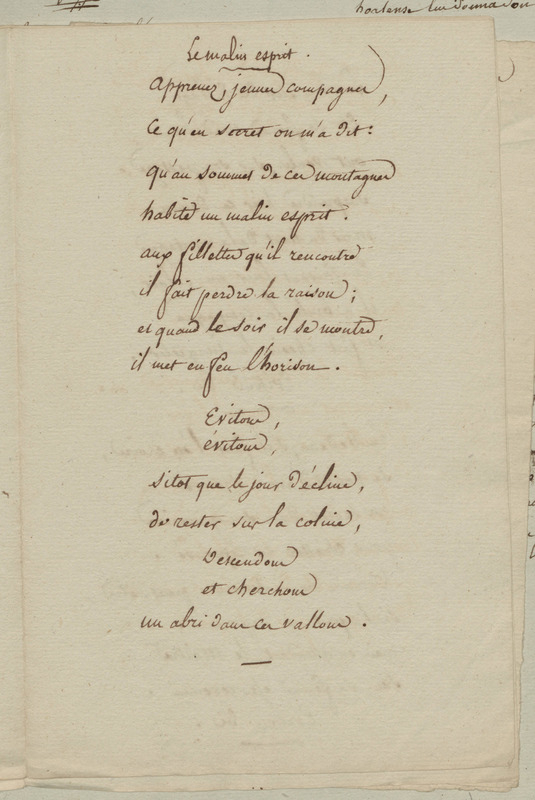 hortense lui donna don
Le malin esprit.
apprenez, jeunes compagnes,
ce qu'en secret on m'a dit:
qu'au sommet de ces montagnes
habite un malin esprit.
aux fillettes qu'il rencontre
il fait perdre la raison;
et quand le soir il se montre,
il met en feu l'horison.
Evitons,
évitons,
sitot que le jour décline,
de rester sur la coline,
Descendons
et cherchons
un abri dans ces vallons.